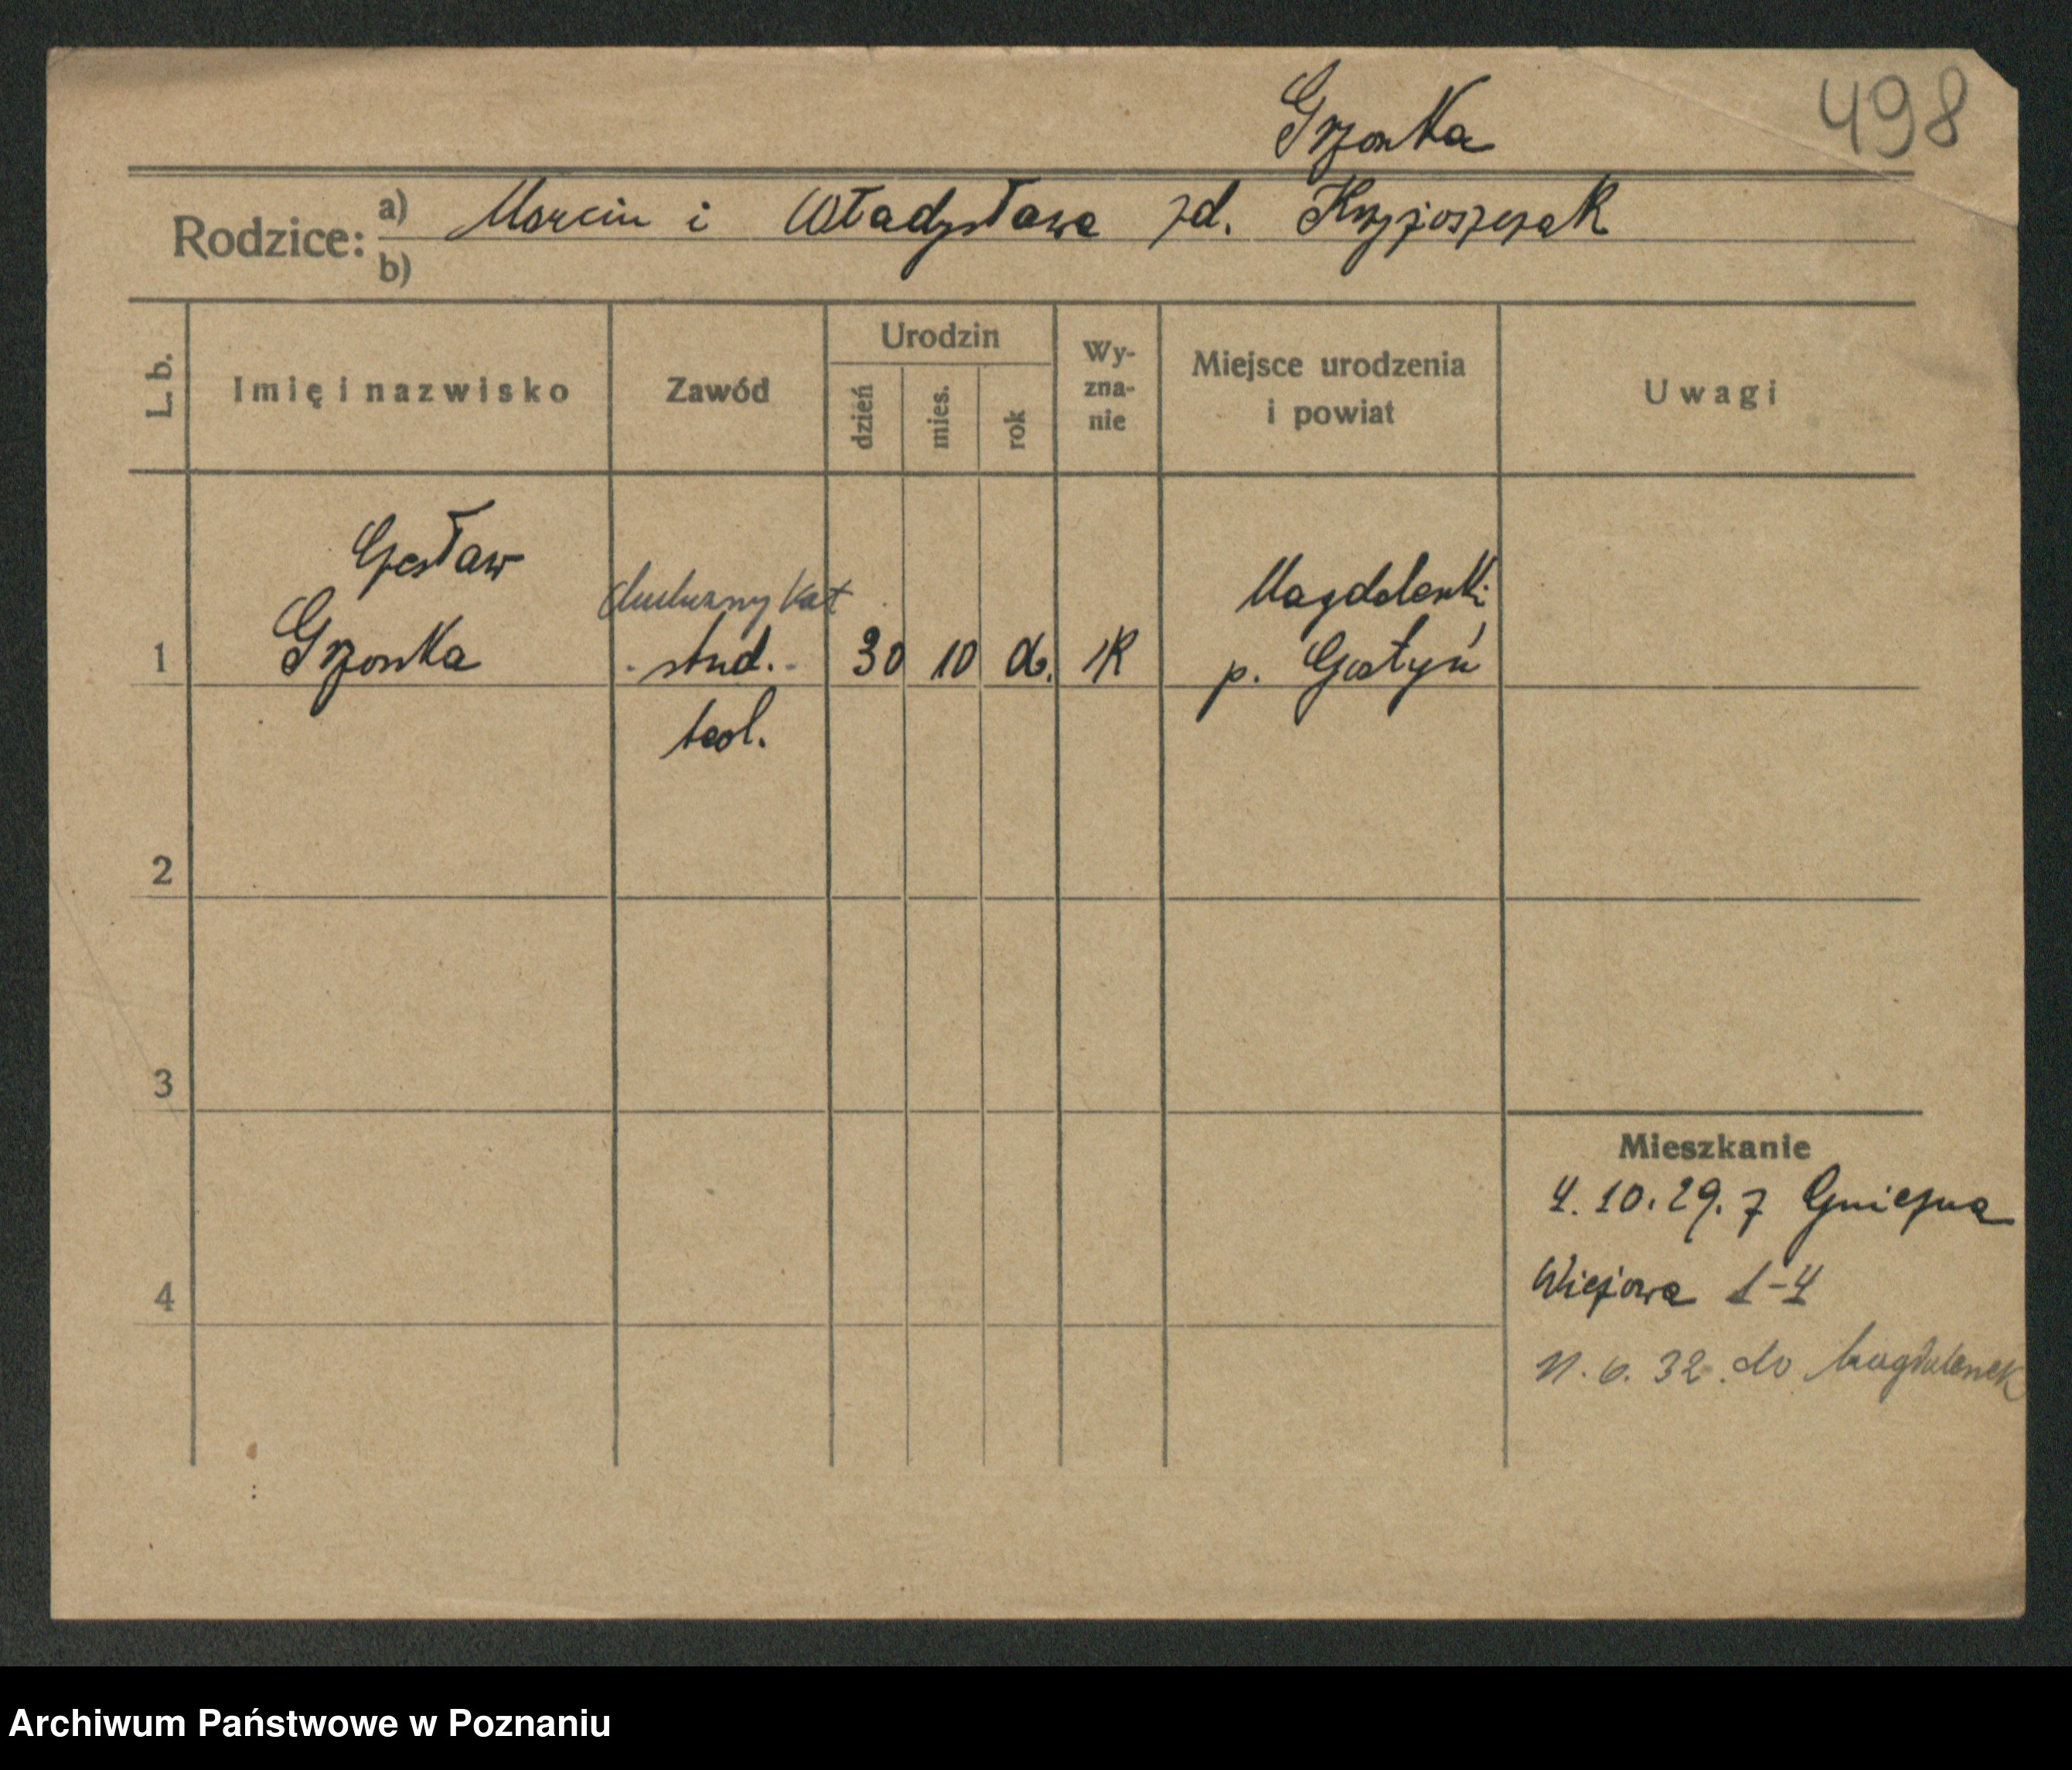 Grzonka
498
Rodzice: a) Marcin i Władysława zd. Krzyżoszczak
b)
L. b. Imię i nazwisko Zawód Urodzin dzień mies. rok Wy-zna-nie Miejsce urodzenia i powiat Uwagi
Czesław
duchowny kat
Magdalenki
1 Grzonka stud. 30 10 K p. Gostyń
teol.
2
3
Mieszkanie
4. 10. 29. z Gniezna
Wieżowa 1-4
4
11. 6. 32. do Magdalenek
Archiwum Państwowe w Poznaniu